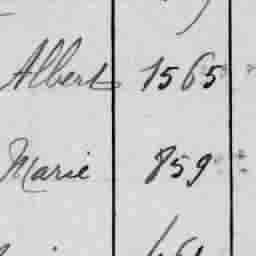 Albert 1565
Marie 859